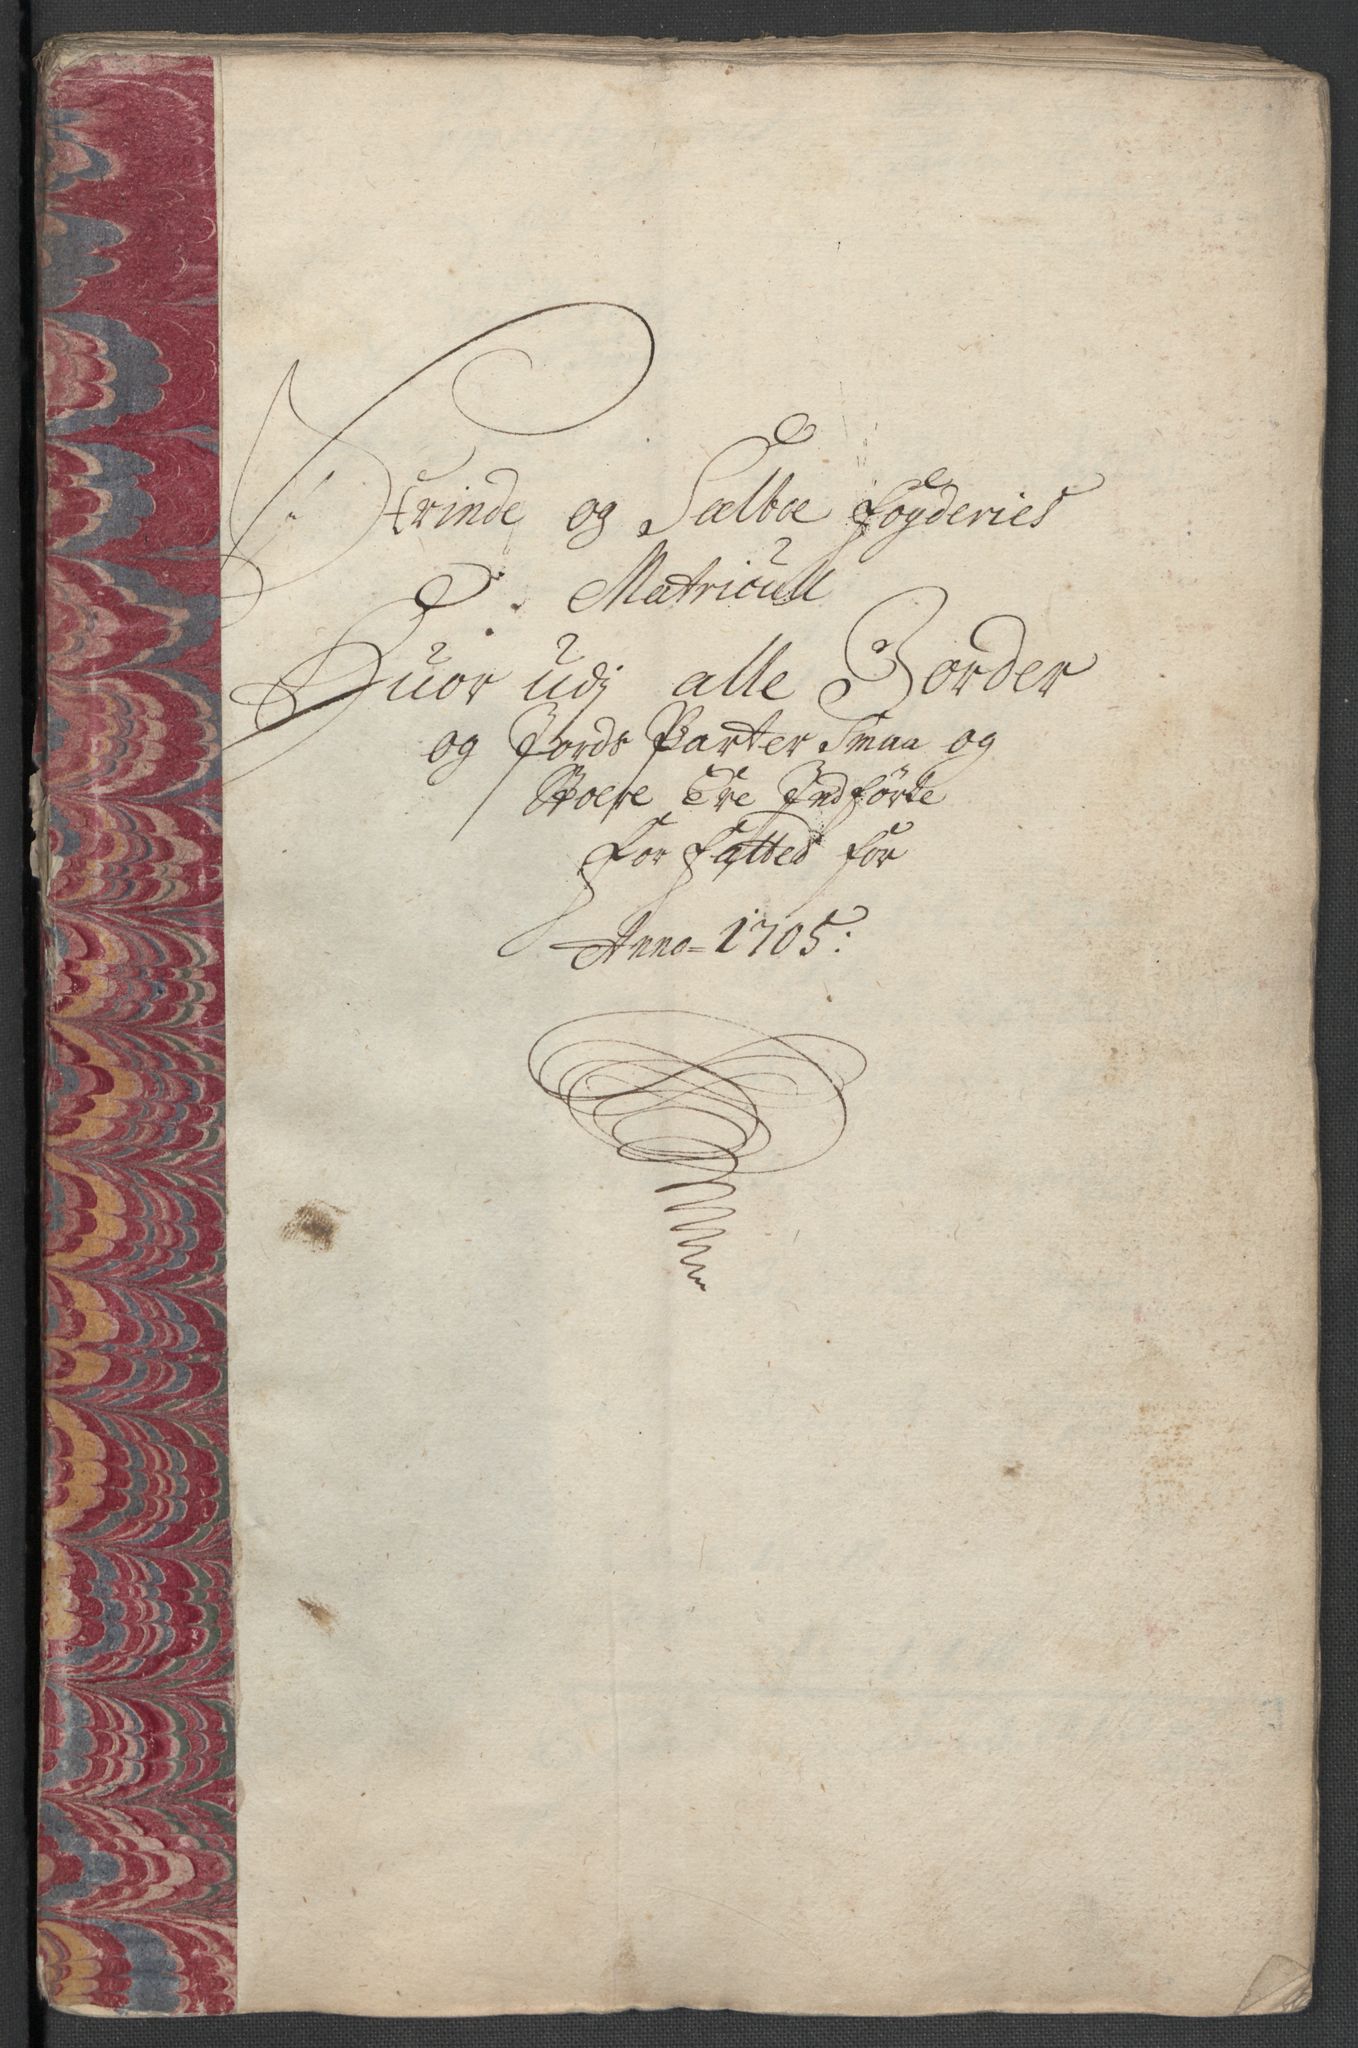 Strinde og Sælboe fogderies
Matricull
Huor udj alle Gorder
og Jords Parter Smaa og
Stoere Ere Jndførte
forfatted for
Anno = 1705: